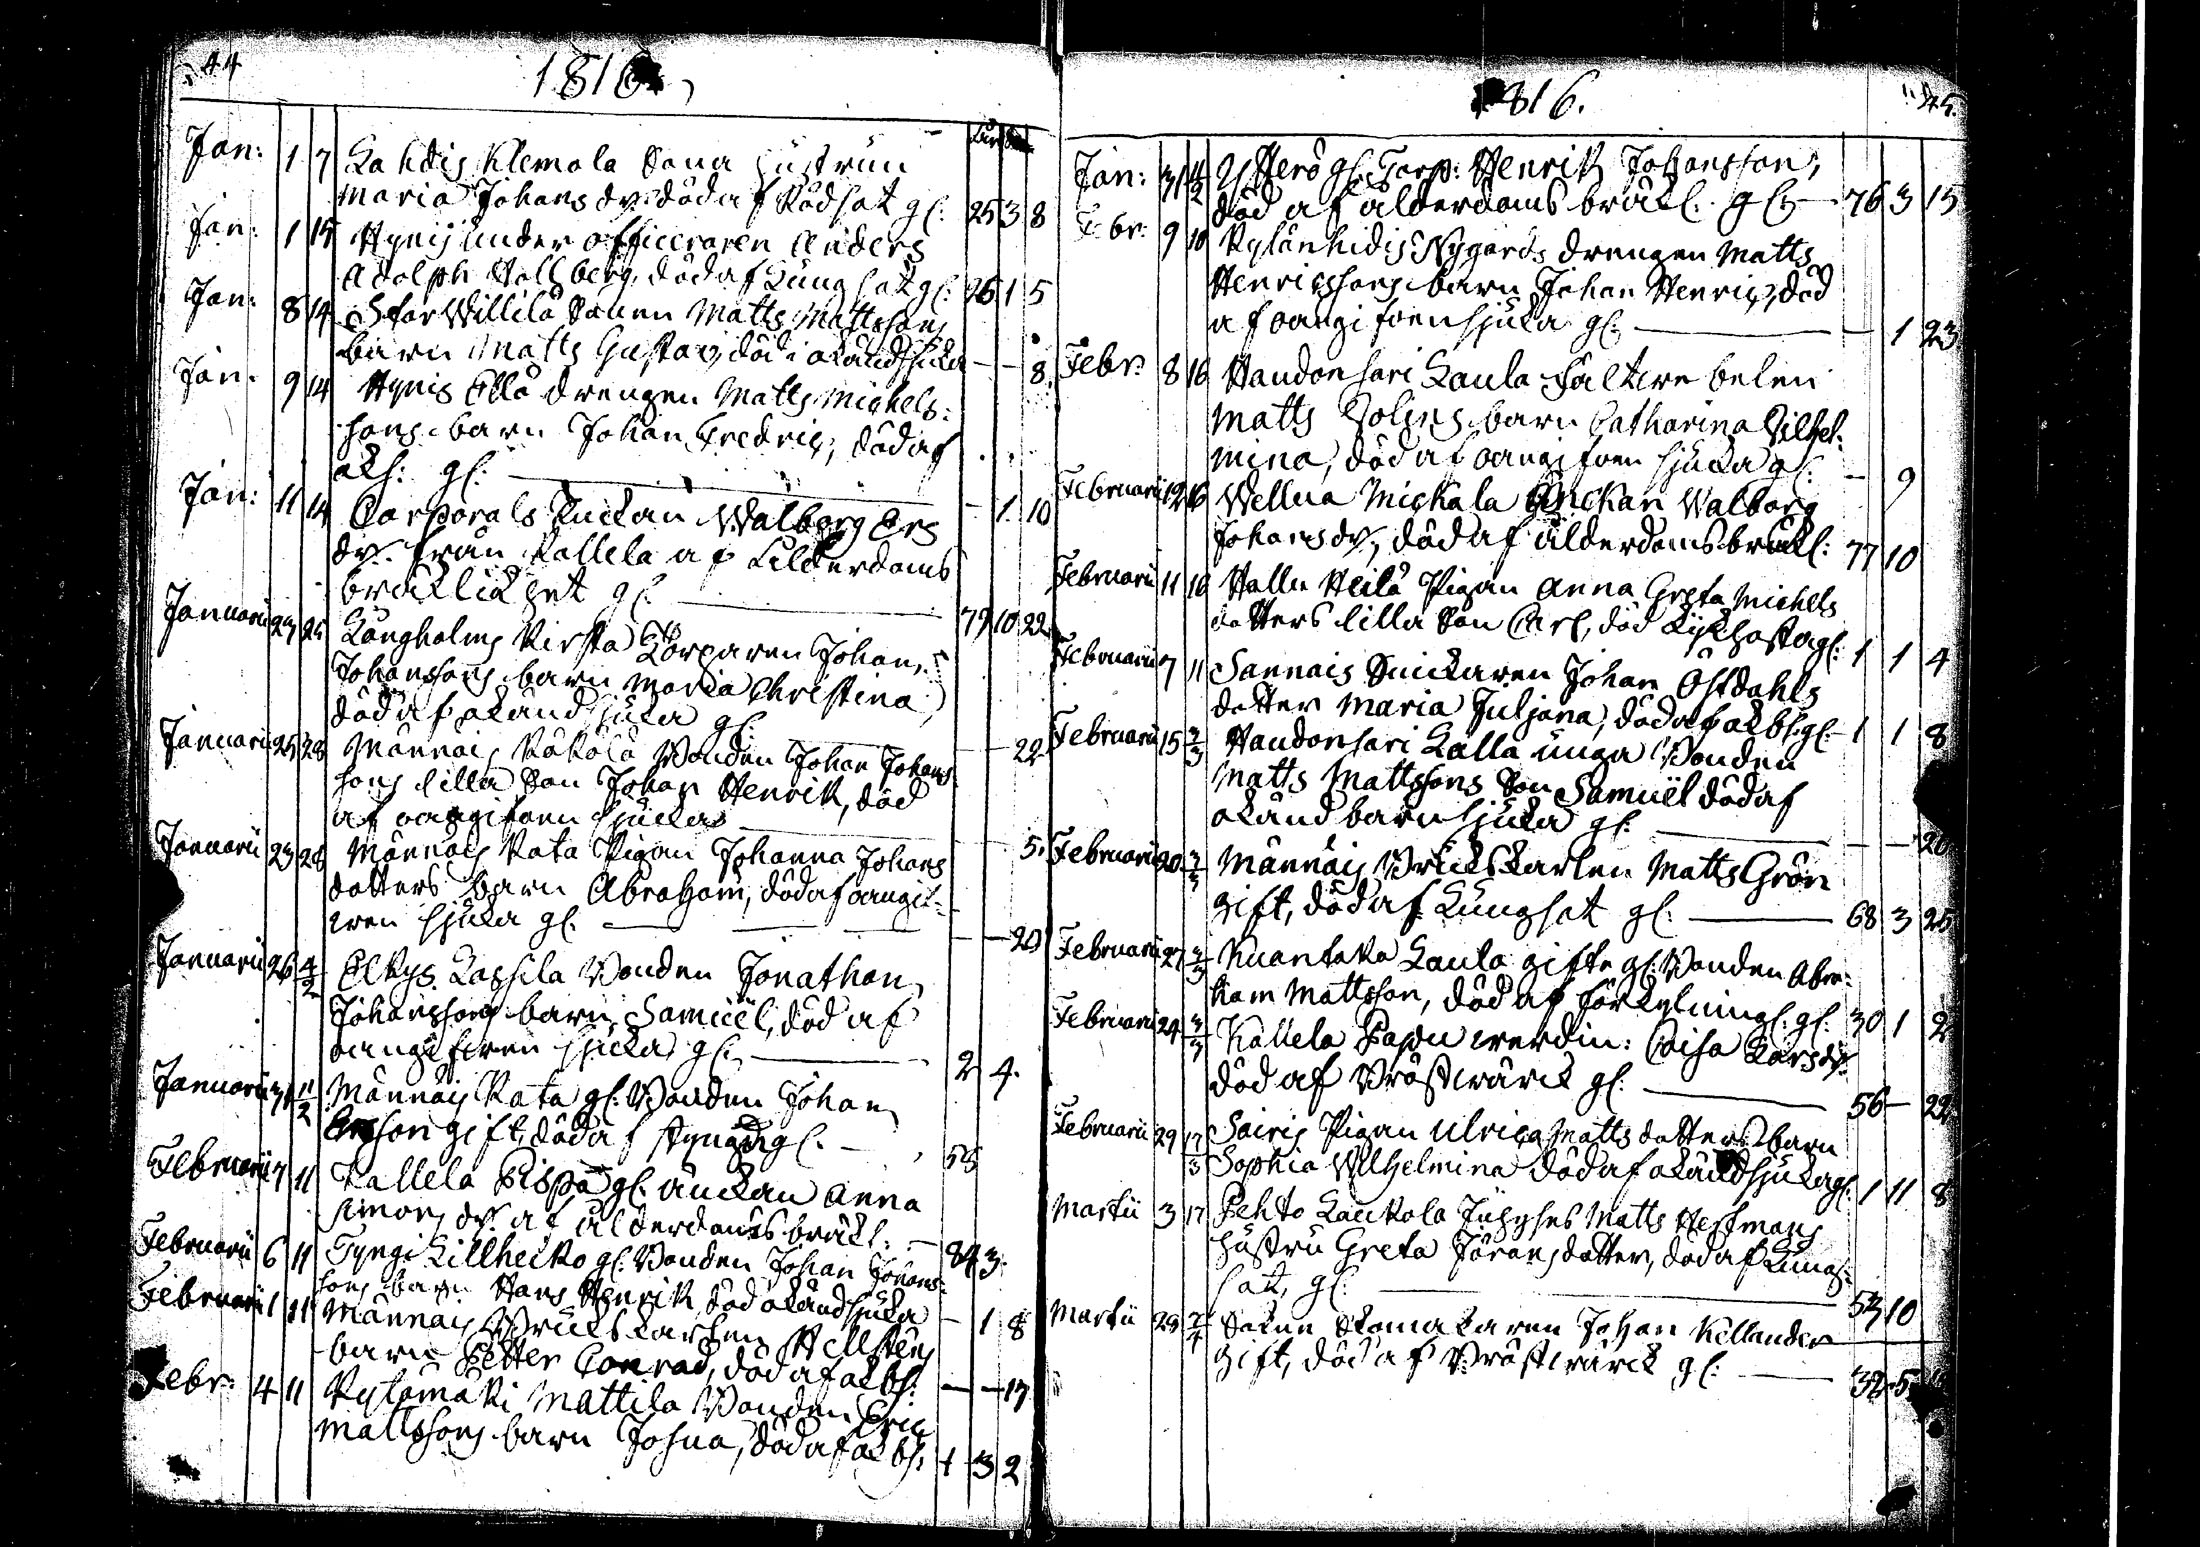 44
1816
Jan: 1 7 Lahdis Klemola Sona hustrun
Maria Johansdr: död af Rödsot gl: 25 3 8
Jan: 1 15 Hynis underofficeraren Anders
Adolph Hallberg, död af Lungsot gl: 26 1 5
Jan: 8 14 Willilä Sonen Matts Mattssons
barn Matts Gustav, död i okänd sjuka — — 8
Jan. 9 14 Hynis Ellä drengen Matts Michels:
sons barn Johan Fredric, död af
oks: gl: — 1 10
Jan: 11 14 Corporals Enckan Walborg Ers
dr. från Kallela af Ålderdoms
bräcklighet gl. 79 10 22
Januarii 23 25 Långholms Kirsta Torparen Johan
Johanssons barn Maria Christina
död af okänd sjuka gl: — — 22
Januarii 25 28 Männäis Bonden Johan Johans
sons lilla Son Johan Henrik, död
af oangifven sjucka — — 5.
Januarii 23 28 Männäis Rata Pigan Johanna Johans
dotters barn Abraham, död af oangif-
wen sjuka gl. — — 20
Januarii 26 4/2 Elkys Kassila Bonden Jonathan
Johanssons barn Samuel, död af
oangifwen sjuka gl. 2 4.
Januarii 31 11/2 Männäis Rata gl: Bonden Johan
Ersson gift, död af styng gl. — 55
Februarii 7 11 Kallela Pispa gl: änckan Anna
Simons dr. af ålderdomsbräckl: — 84 3.
Februarii 6 11 Tyngi Lillheiko gl: Bonden Johan Johans:
sons barn Hans Henrik, död okänd sjuka — 1 8
Februarii 1 11 Männäis Brukskarlen Hellstens
barn Petter Conrad, död af okbs: — — 17
Febr: 4 11 Kylämäki Mattila Bonden Eric
Mattssons barn Josua, död af okbs. 1 3 2
1816.
45.
Jan: 31 11/2 Ytterö gl: Torp: Henrik Johansson,
död af ålderdomsbräckl. gl: 76 3 15
Febr: 9 10 Nygårds drengen Matts
Henricssons barn Johan Henric, död
af oangifven sjuka gl: — 1 23
Febr: 8 16 Haudonsari Laula Fältwebelen
Matts barn Catharina Vilhel:
mina, död af oangifven sjucka gl: — 9
Februarii 12 16 Wellua Michala Enckan Walborg
Johansdr, död af ålderdomsbräckl: 77 10
Februarii 11 16 Hallu Heilä Pigan Anna Greta Michels
dotters lilla Son Carl, död kikhosta gl: 1 1 4
Februarii 7 11 Sannais Snickaren Johan Östdahls
dotter Maria Juljana, död af okbs. gl: 1 1 8
Februarii 15 2/3 Haudonsari Lalla unga Bonden
Matts Mattssons Son Samuel död af
okänd barnsjuka gl: — — 20
Februarii 20 3/3 Männäis Brukskarlen Matts Grön
gift, död af Lungsot gl: 68 3 25
Februarii 27 3/3 Kuantaka Laula gifte gl: Bonden Abra:
ham Mattsson, död af förkylning: gl: 30 1 2
Februarii 24 3/3 Kallela Pappu werdin: Caisa Larsdr.
död af Bröstwärck gl: 56 — 22
Februarii 29 17/3 Sairis Pigan Ulrica Mattsdotters barn
Sophia Wilhelmina död af okänd sjuka gl: 1 11 8
Martii 3 17 Pehto Laukola Matts Hestmans
hustru Greta Jöransdotter, död af Lungs:
sot, gl: 53 10
Martii 29 7/4 Sokne Skomakaren Johan Kellander
gift, död af Bröstwärck gl: 32 5